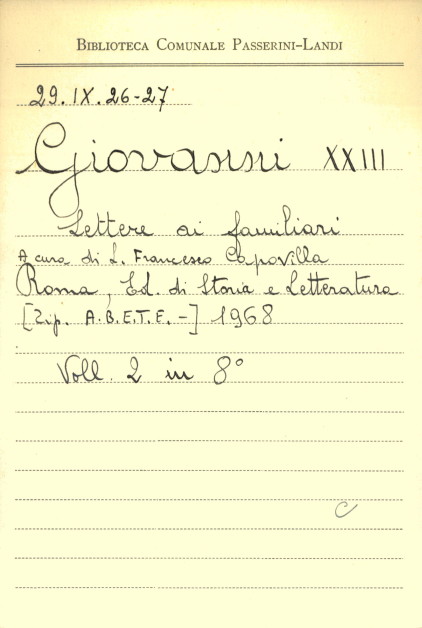 BIBLIOTECA COMUNALE PASSERINI-LANDI
29.IX.26-27
Giovanni XXIII
Lettere ai familiari
A cura di L. Francesco Capovilla
Roma, Ed. di Storia e Letteratura
[Tip. A.B.E.T.E. -] 1968
Voll. 2 in 8°
C